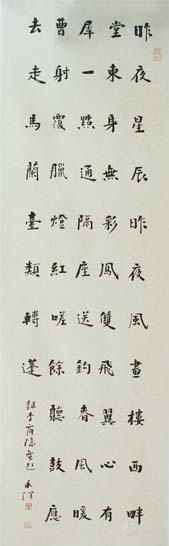 昨夜星辰昨夜風畫樓西畔
堂東身無彩鳳雙飛翼心有
犀一點通隔座送鉤春風暖
曹射覆臘燈紅嗟餘聽鼓應
去走馬蘭臺類轉蓬
錄李商隱無題